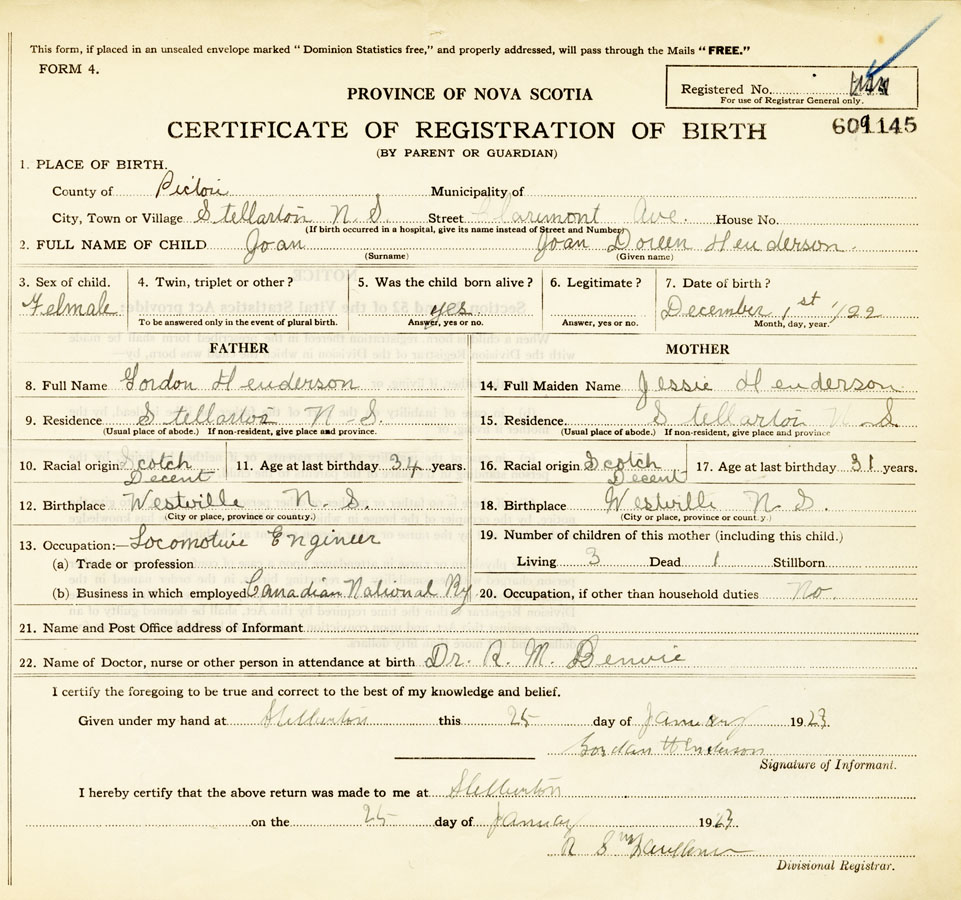 This form, if placed in an unsealed envelope marked "Dominion Statistics free," and properly addressed, will pass through the Mails "FREE."
FORM 4.
Registered No.
For use of Registrar General only.
PROVINCE OF NOVA SCOTIA
CERTIFICATE OF REGISTRATION OF BIRTH
(BY PARENT OR GUARDIAN)
1. PLACE OF BIRTH.
County of Pictou Municipality of
City, Town or Village Stellarton N S Street Claremont Ave. House No.
(If birth occurred in a hospital, give its name instead of Street and Number)
2. FULL NAME OF CHILD Joan Joan Doreen Henderson.
(Surname) (Given name)
3. Sex of child. 4. Twin, triplet or other? 5. Was the child born alive? 6. Legitimate? 7. Date of birth?
Felmale yes December 1st 1/22
To be answered only in the event of plural birth. Answer, yes or no. Answer, yes or no. Month, day, year.
FATHER MOTHER
8. Full Name Gordon Henderson 14. Full Maiden Name Jessie Henderson.
9. Residence Stellarton N.S. 15. Residence. Stellarton N.S.
(Usual place of abode.) If non-resident, give place and province. (Usual place of abode.) If non-resident, give place and province
10. Racial origin Scotch Decent 11. Age at last birthday 34 years. 16. Racial origin Scotch Decent 17. Age at last birthday 31 years.
12. Birthplace Westville N.S. 18. Birthplace Westville N.S.
(City or place, province or country.) (City or place, province or country.)
13. Occupation:— Locomotive Engineer 19. Number of children of this mother (including this child.)
(a) Trade or profession Living 3 Dead 1 Stillborn
(b) Business in which employed Canadian National Ry 20. Occupation, if other than household duties No.
21. Name and Post Office address of Informant
22. Name of Doctor, nurse or other person in attendance at birth Dr. R. M. Benvie
I certify the foregoing to be true and correct to the best of my knowledge and belief.
Given under my hand at Stellarton this 25 day of January 1923
Gordan Henderson
Signature of Informant.
I hereby certify that the above return was made to me at Stellarton
on the 25 day of January 1923.
R S
Divisional Registrar.